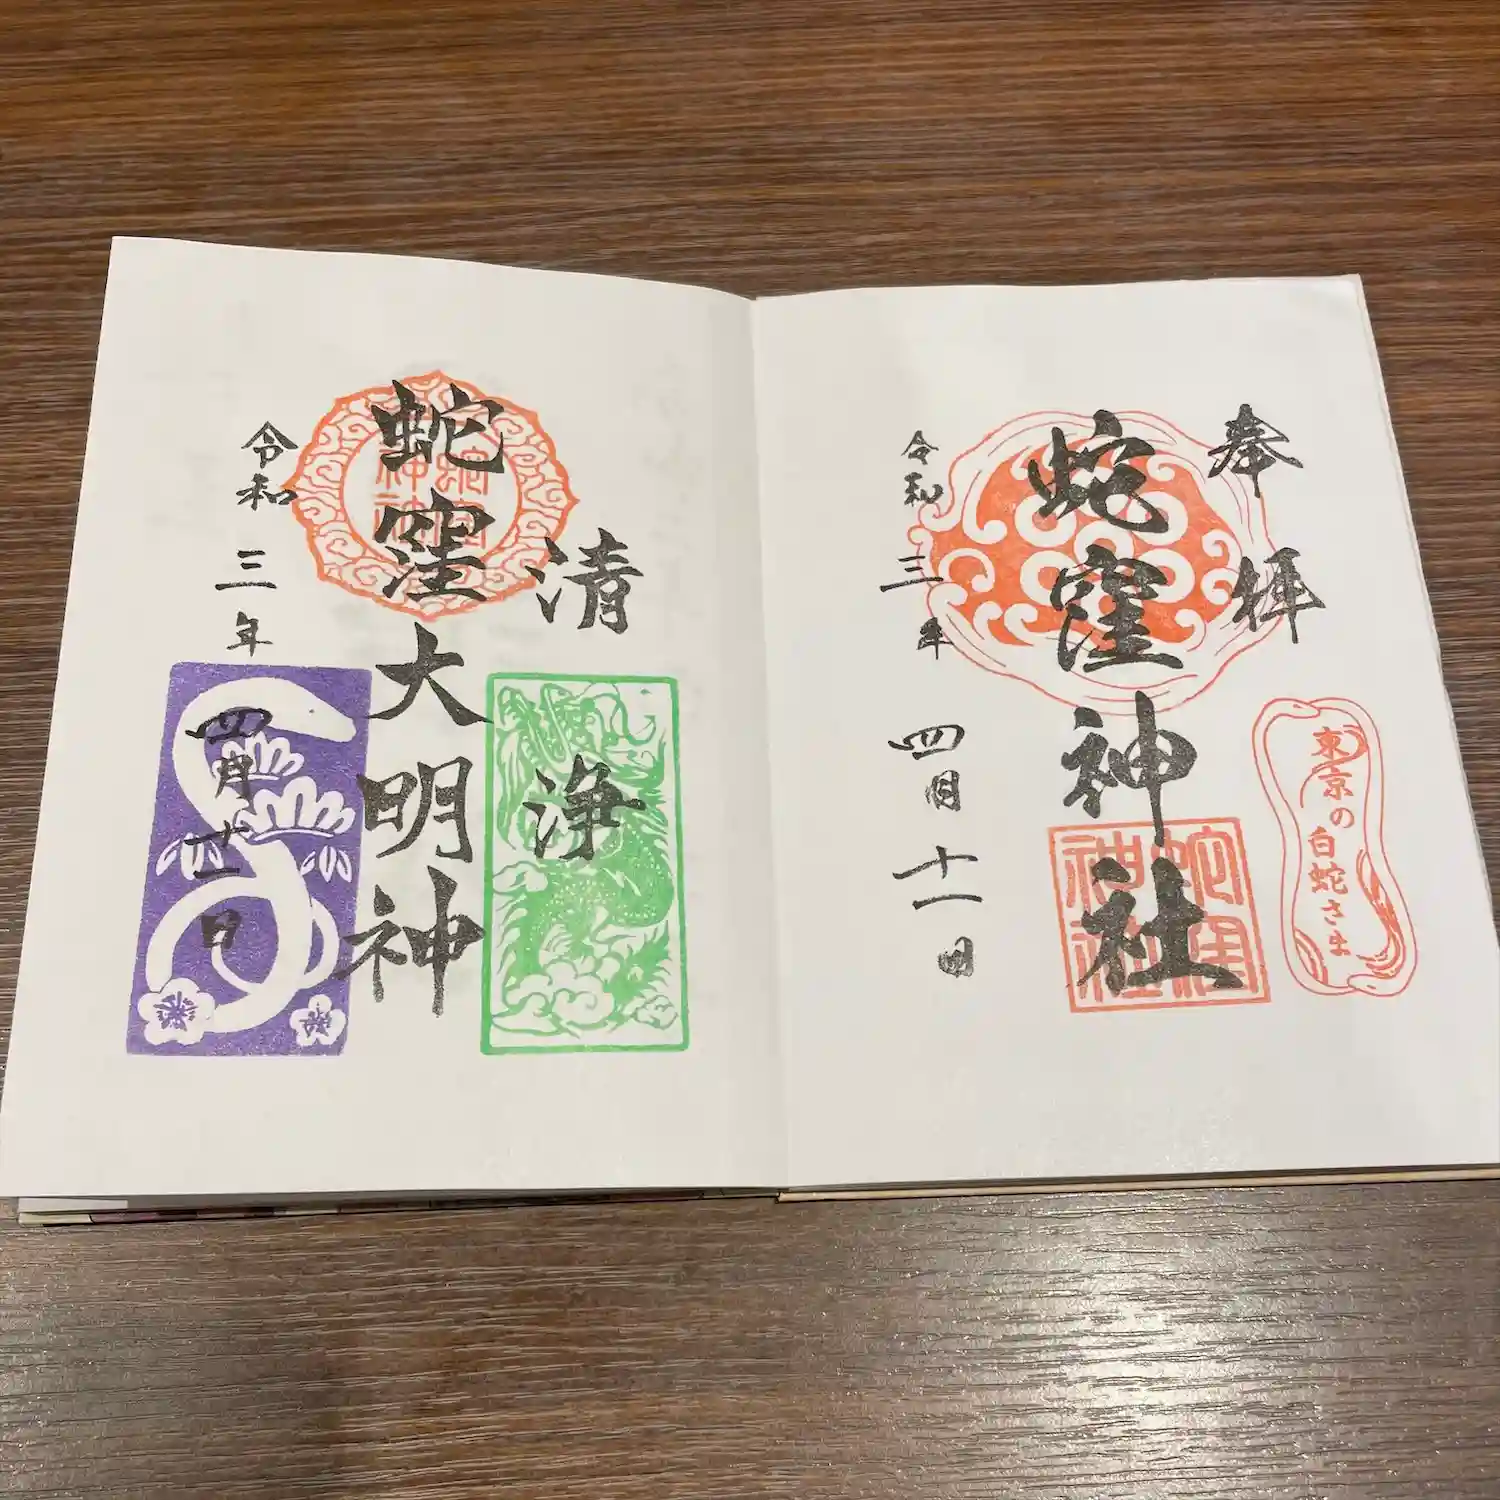 奉拝
蛇窪神社
蛇窪神社
東京の白蛇さま
令和三年四月十一日
清浄
蛇窪大明神
令和三年四月十一日